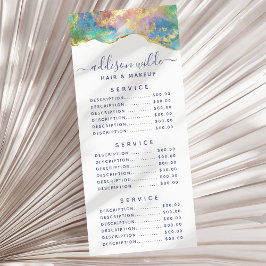 addison wilde
HAIR & MAKEUP
SERVICE
DESCRIPTION............$00.00
DESCRIPTION............$00.00
DESCRIPTION............$00.00
DESCRIPTION............$00.00
DESCRIPTION............$00.00
DESCRIPTION............$00.00
SERVICE
DESCRIPTION............$00.00
DESCRIPTION............$00.00
DESCRIPTION............$00.00
DESCRIPTION............$00.00
DESCRIPTION............$00.00
DESCRIPTION............$00.00
SERVICE
DESCRIPTION............$00.00
DESCRIPTION............$00.00
DESCRIPTION............$00.00
DESCRIPTION............$00.00
DESCRIPTION............$00.00
DESCRIPTION............$00.00